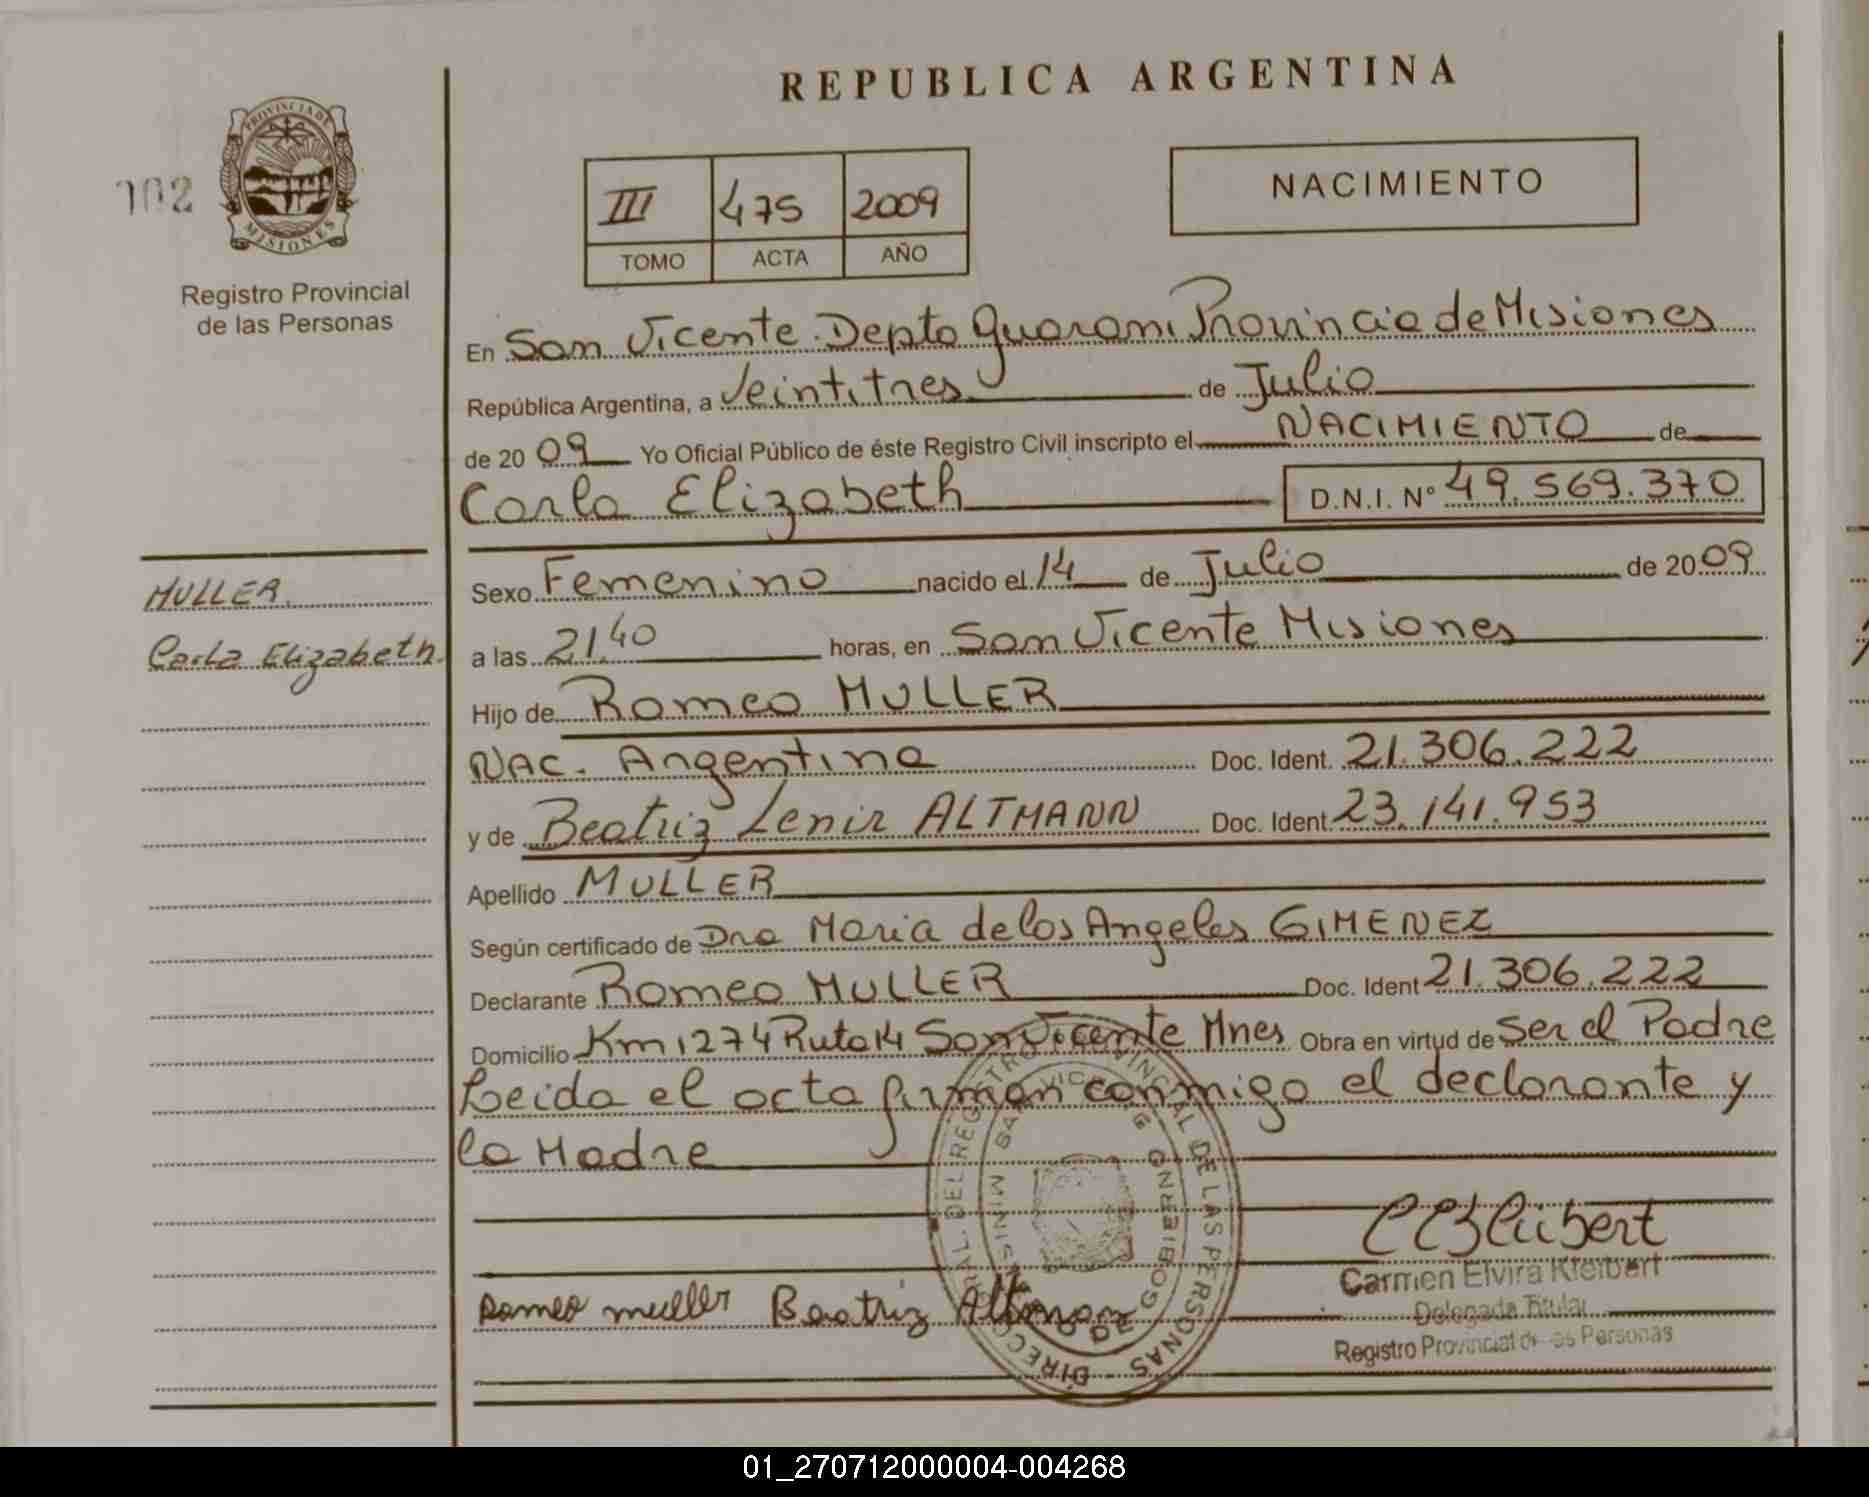 REPUBLICA ARGENTINA
102
PROVINCIA DE
MISIONES
Registro Provincial
de las Personas
III 475 2009
TOMO ACTA AÑO
NACIMIENTO
En San Vicente. Depto Guarani Provincia de Misiones
República Argentina, a Veintitres de Julio
de 2009 Yo Oficial Público de éste Registro Civil inscripto el NACIMIENTO de
Carla Elizabeth D.N.I. Nº 49.569.370
MULLER
Carla Elizabeth
Sexo Femenino nacido el 14 de Julio de 2009
a las 21.40 horas, en San Vicente Misiones
Hijo de Romeo MULLER
NAC. Argentina Doc. Ident. 21.306.222
y de Beatriz Lenir ALTMANN Doc. Ident. 23.141.953
Apellido MULLER
Según certificado de Dra Maria de los Angeles GIMENEZ
Declarante Romeo MULLER Doc. Ident 21.306.222
Domicilio Km 1274 Ruta 14 San Vicente Mnes Obra en virtud de Ser el Padre
Leida el acta firman conmigo el declarante y
la Madre
Romeo muller Beatriz Altman
Carmen Elvira Kleibert
Delegada Titular
Registro Provincial de las Personas
01_270712000004-004268